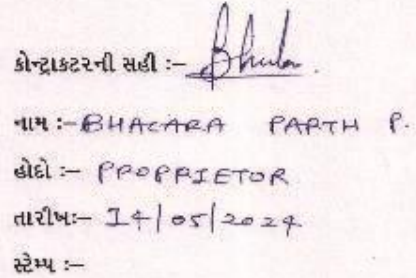 કોન્ટ્રાકટરની સહી :- Bhula
નામ :- BHALARA PARTH P.
હોદો :- PROPRIETOR
તારીખ:- 14/05/2024
સ્ટેમ્પ :-